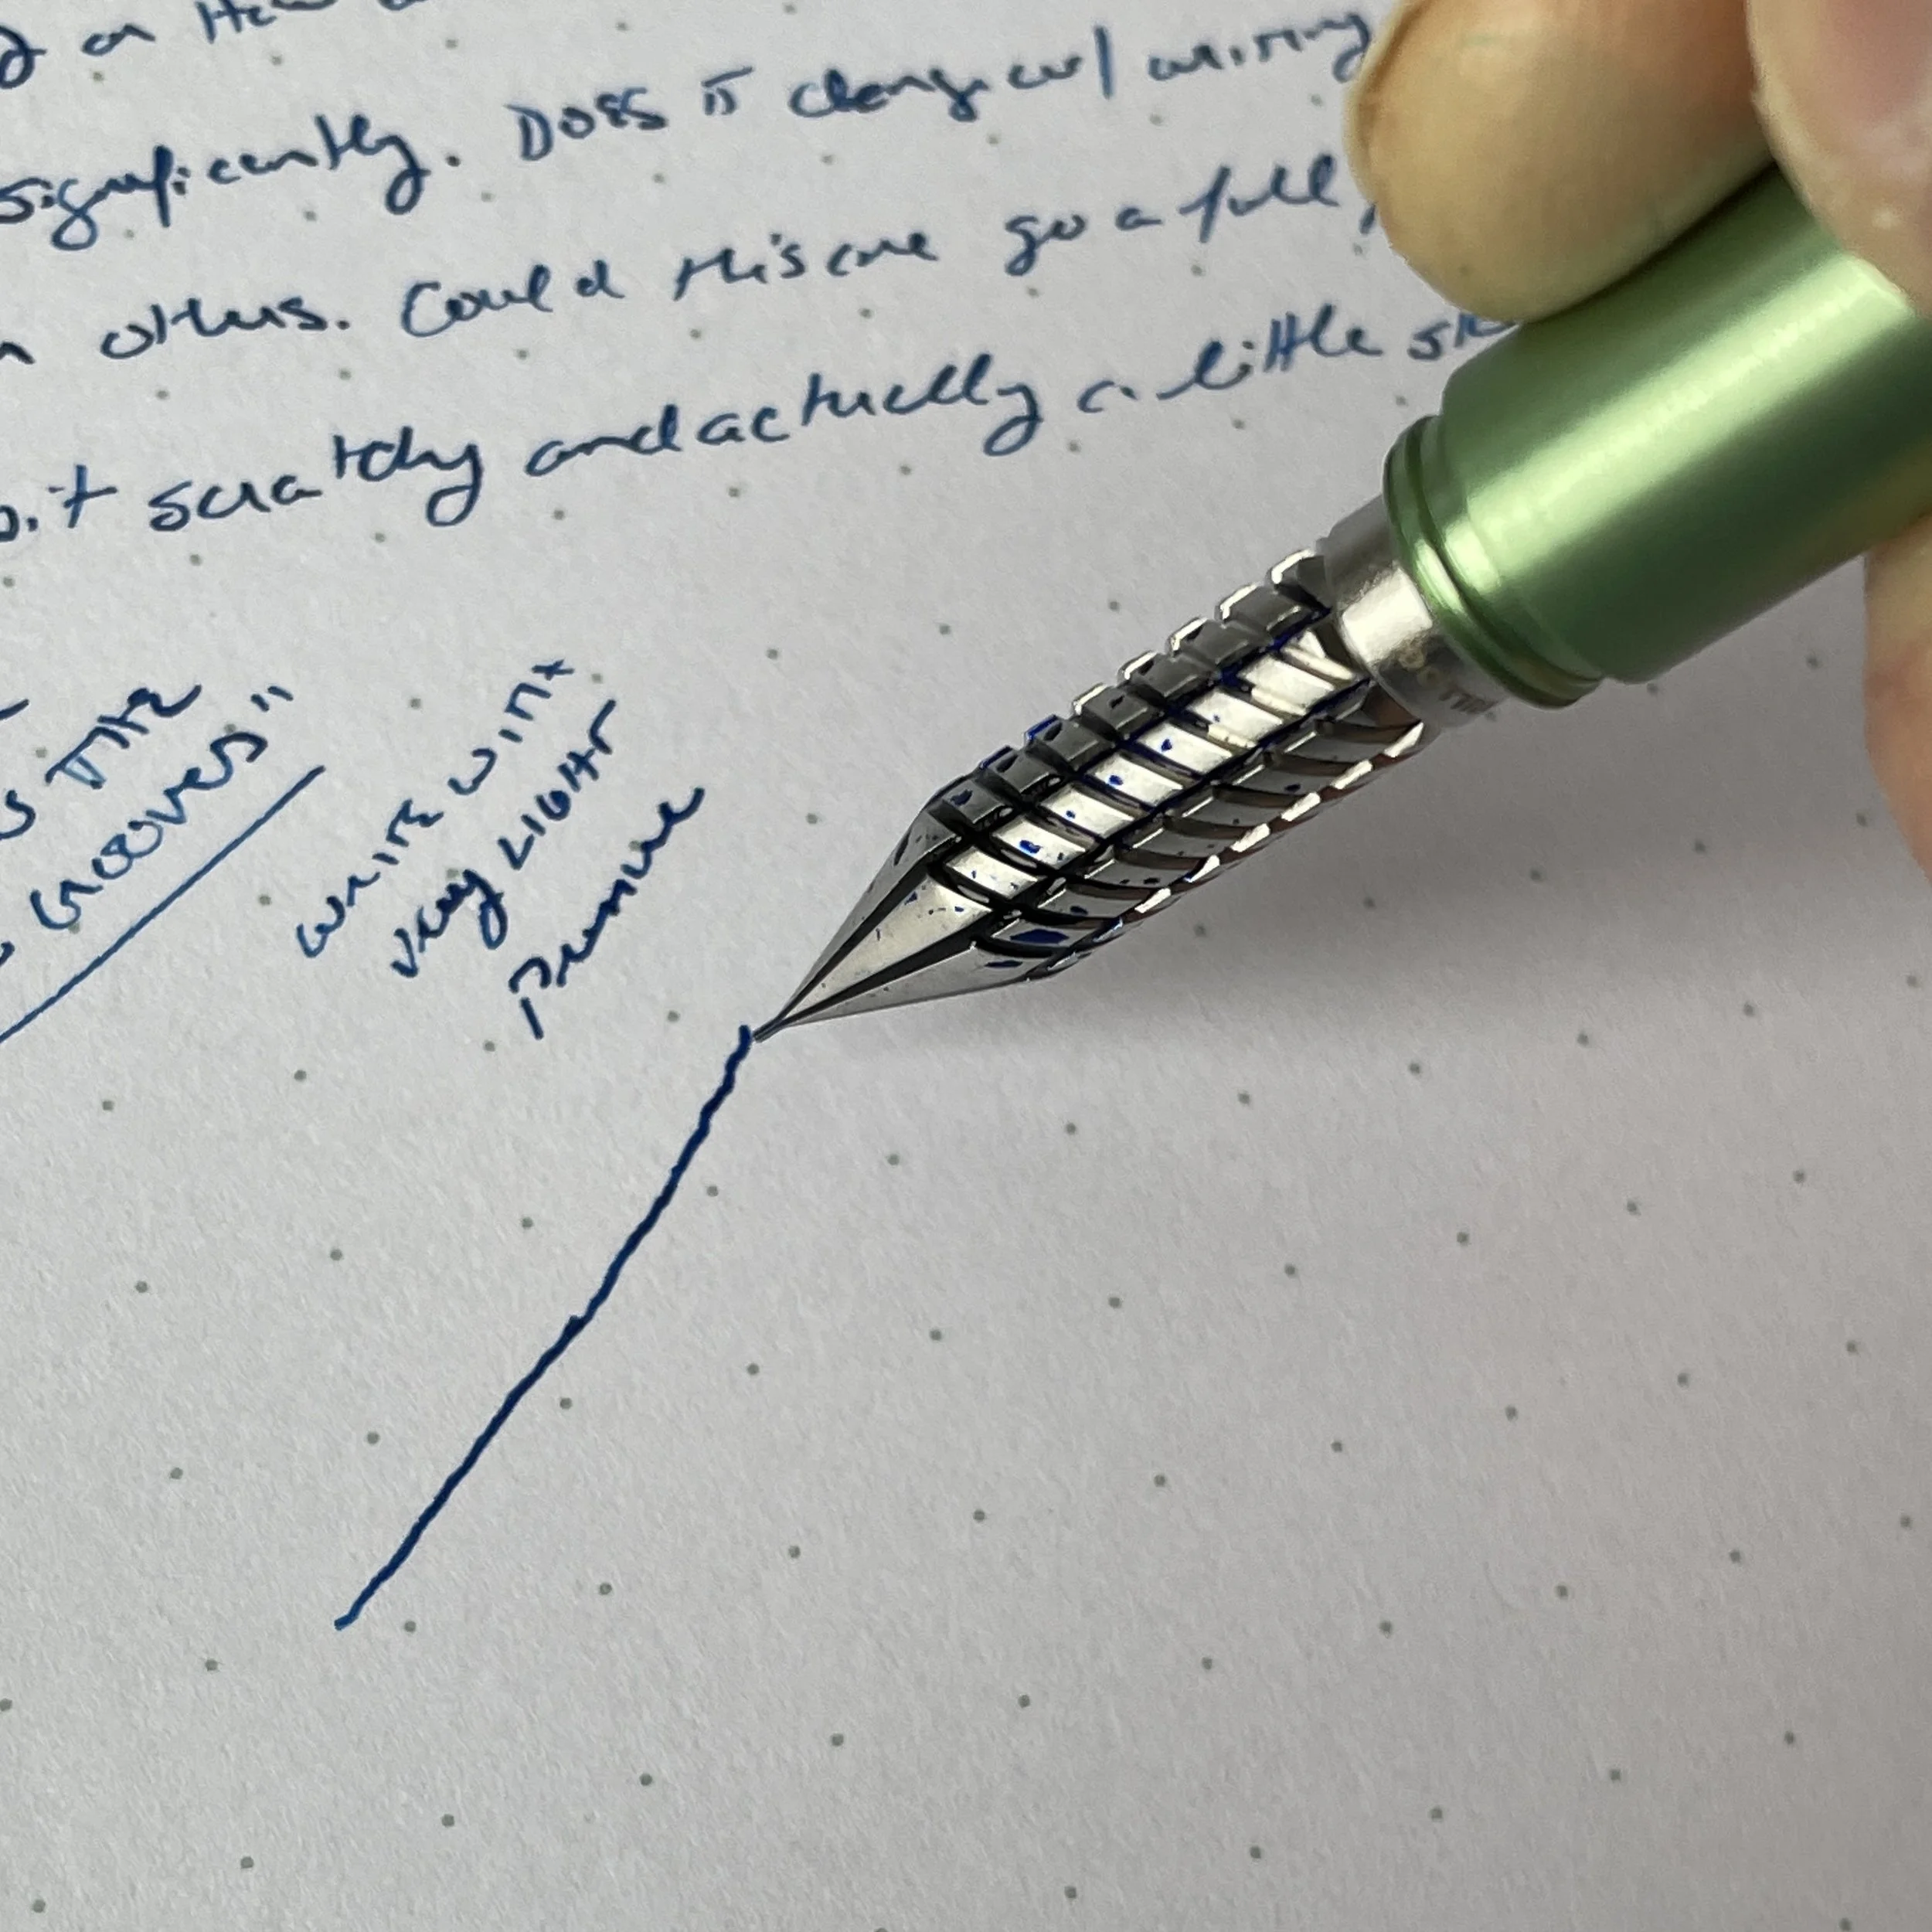 on
significantly. Does it change w/ writing
others. Could this one go a full
bit scratchy and actually a little
THE
GROOVES"
WRITE WITH
very LIGHT
Pressure